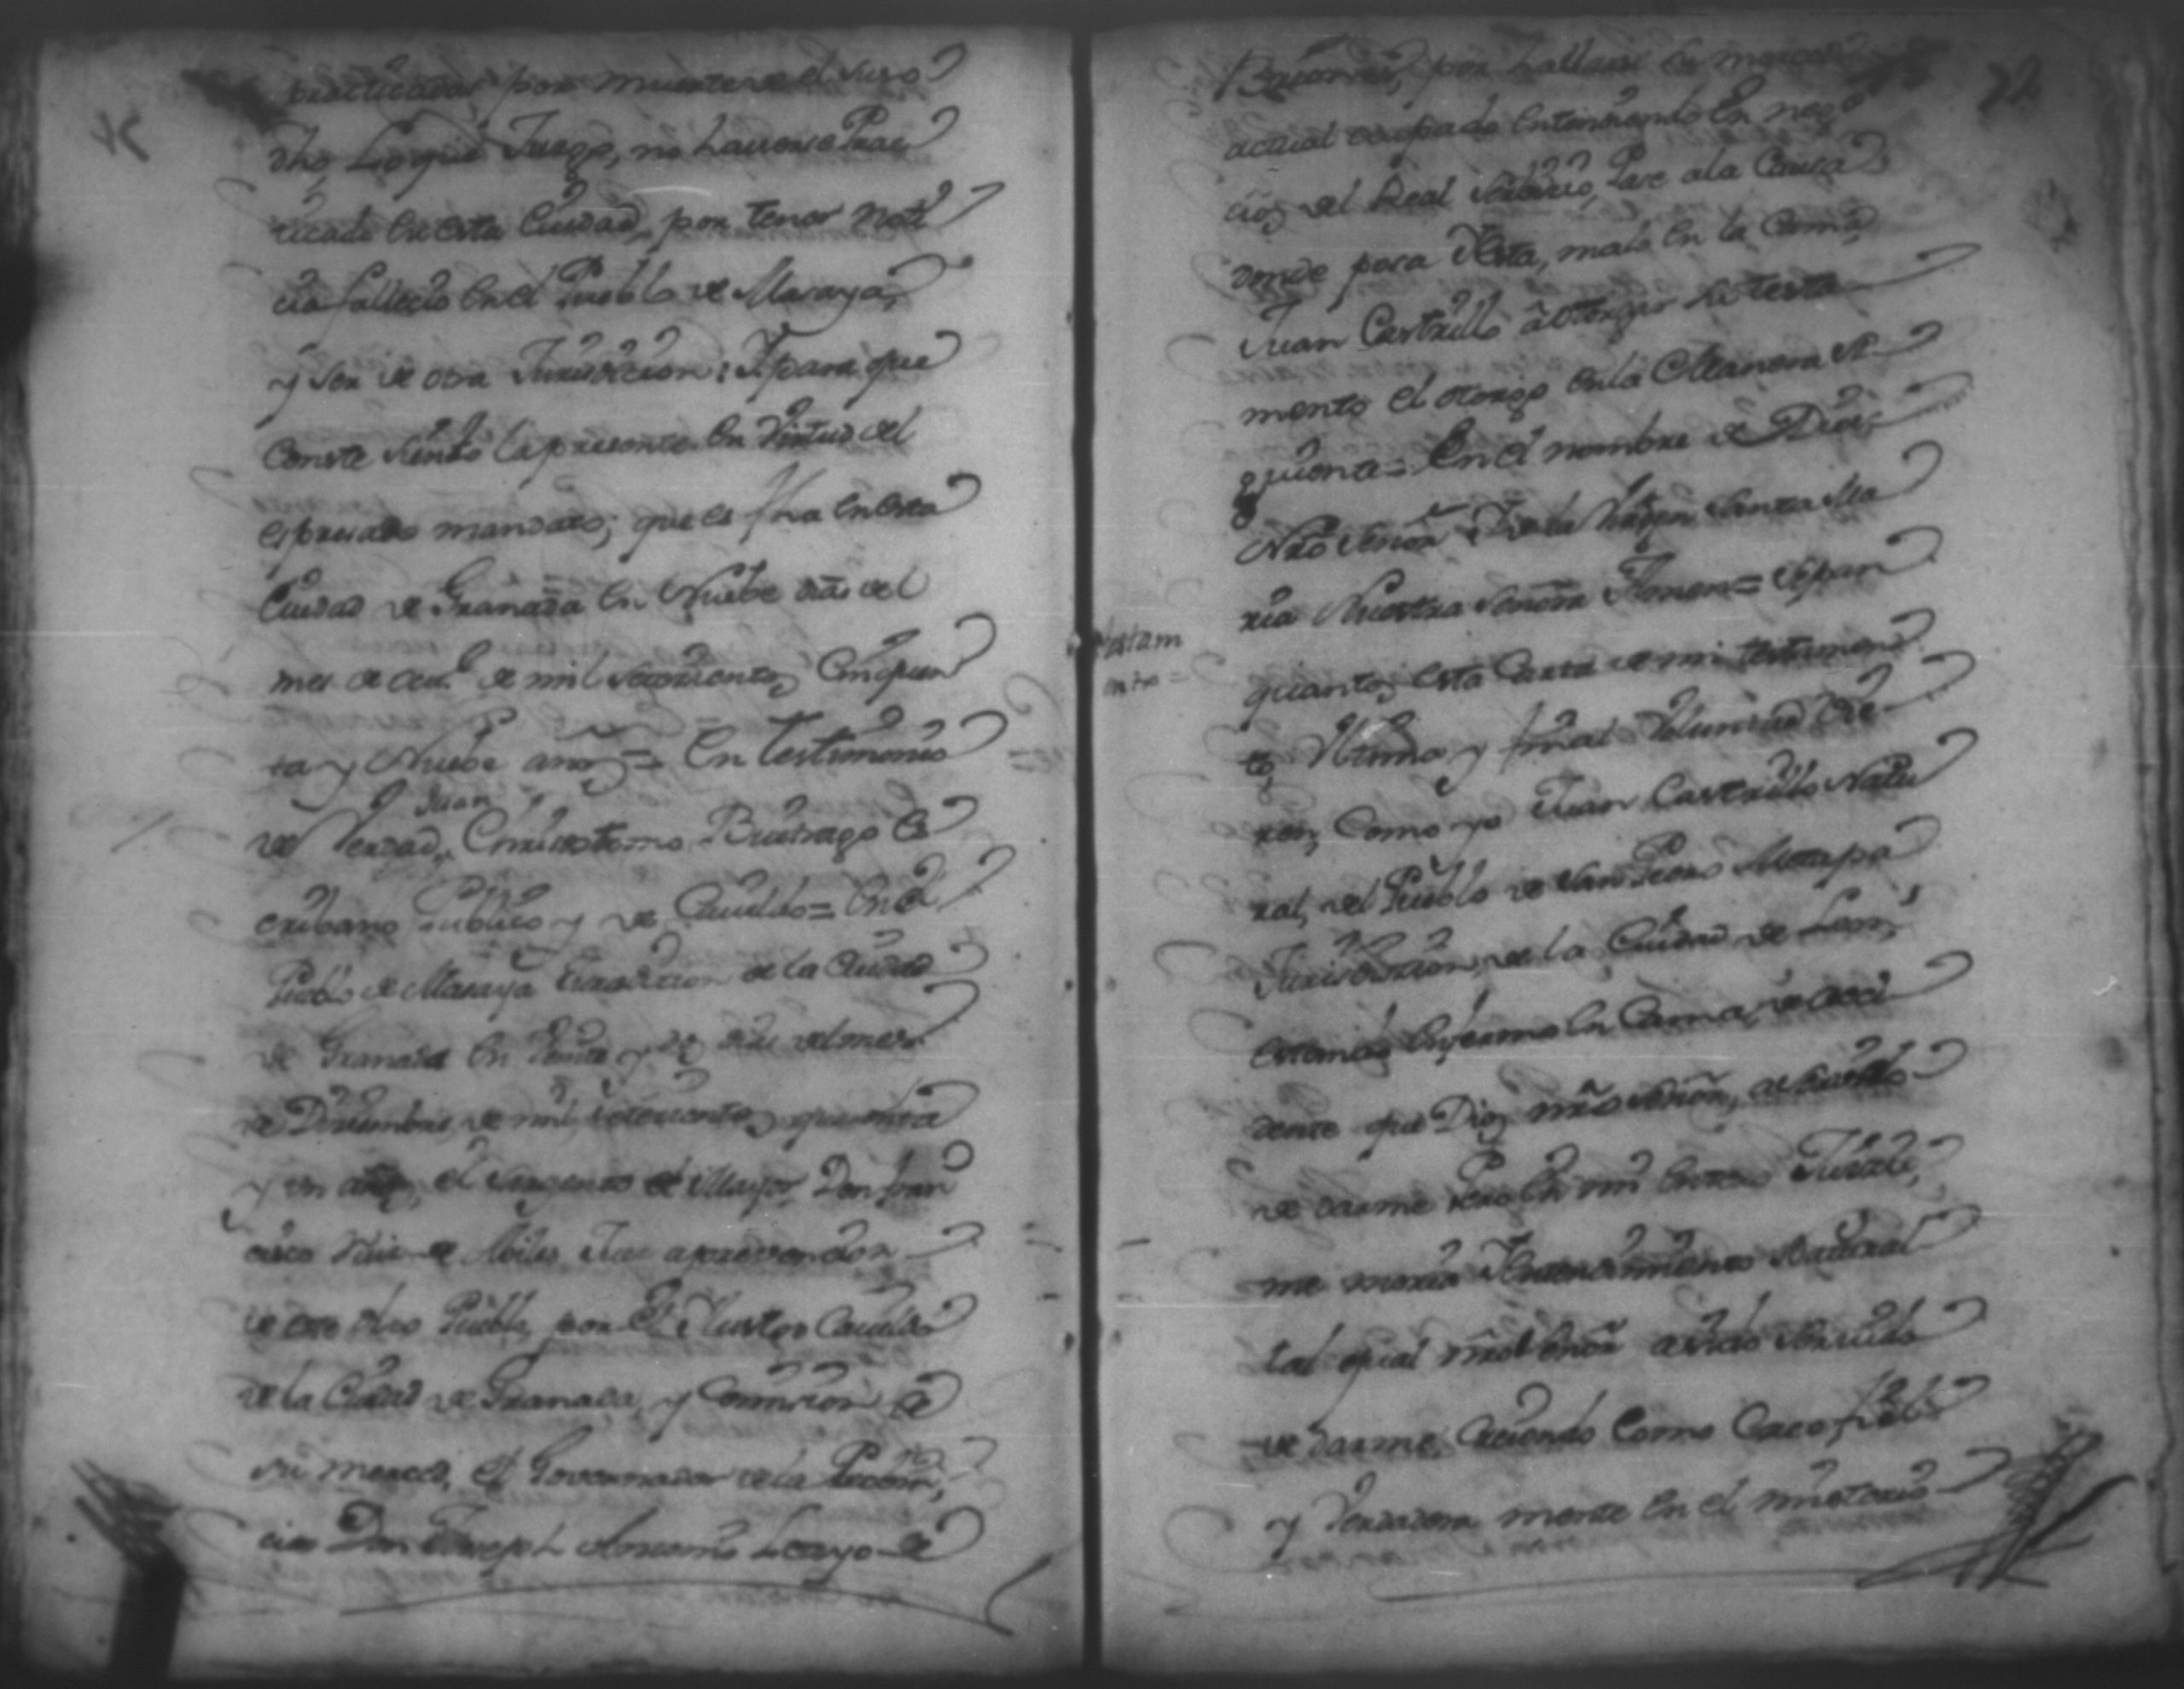 practicadas por muerte de el suso
dho, Lo que Juzgo, no haverse Prac
ticado en esta Ciudad, por tener noti
cia fallecio en el Pueblo de Masaya,
y ser de otra Jurisdiccion: Y para que
Conste siento la presente en Virtud del
espresado mandato; que es fha en esta
Ciudad de Granada en Nuebe dias del
mes de de mil setecientos Cinquen
ta y Nuebe años = En testimonio
Juan
de Verdad, Chrisostomo Buitrago Es
cribano Publico y de Cavildo = En el
Pueblo de Masaya Jurisdiccion de la Ciudad
de Granada en Veinte y dias del mes
de Disiembre, de mil setecientos quarenta
y un años, el Sargento el Mayor, Don Fran
cisco Ruis de Juez a prevencion
de este dho Pueblo, por el Ilustre Cavildo
de la Ciudad de Granada, y Comision de
su merced, el Governador de la Provin,
cia Don Joseph Antonio Lacayo de
Briones, por hallarse su merced
actual ocupado entendiendo en nego
cios del Real servicio, Pase a la Casa
donde posa malo en la Cama,
Juan Castrillo a otorgar su testa
mento el otorgo en la Manera si
guiente = En el nombre de Dios
Nro Señor y de la Virgen Santa Ma
ria Nuestra Señora Amen = Sepan
testam
ento =
quantos esta Carta de mi testamen
to, Ultima y final Voluntad Vie
ren, Como yo Juan Castrillo Natu
ral, del Pueblo de San Pedro Metapa
Jurisdiccion, de la Ciudad de Leon,
estando enfermo en Cama, de acci
dente que Dios nro Señor, a servido
de darme Pero en mi entero Juicio,
me moria Y entendimiento Natural
tal qual nro Señor a sido servido
de darme, Creiendo Como Creo fiel
y Verdadera mente en el misterio